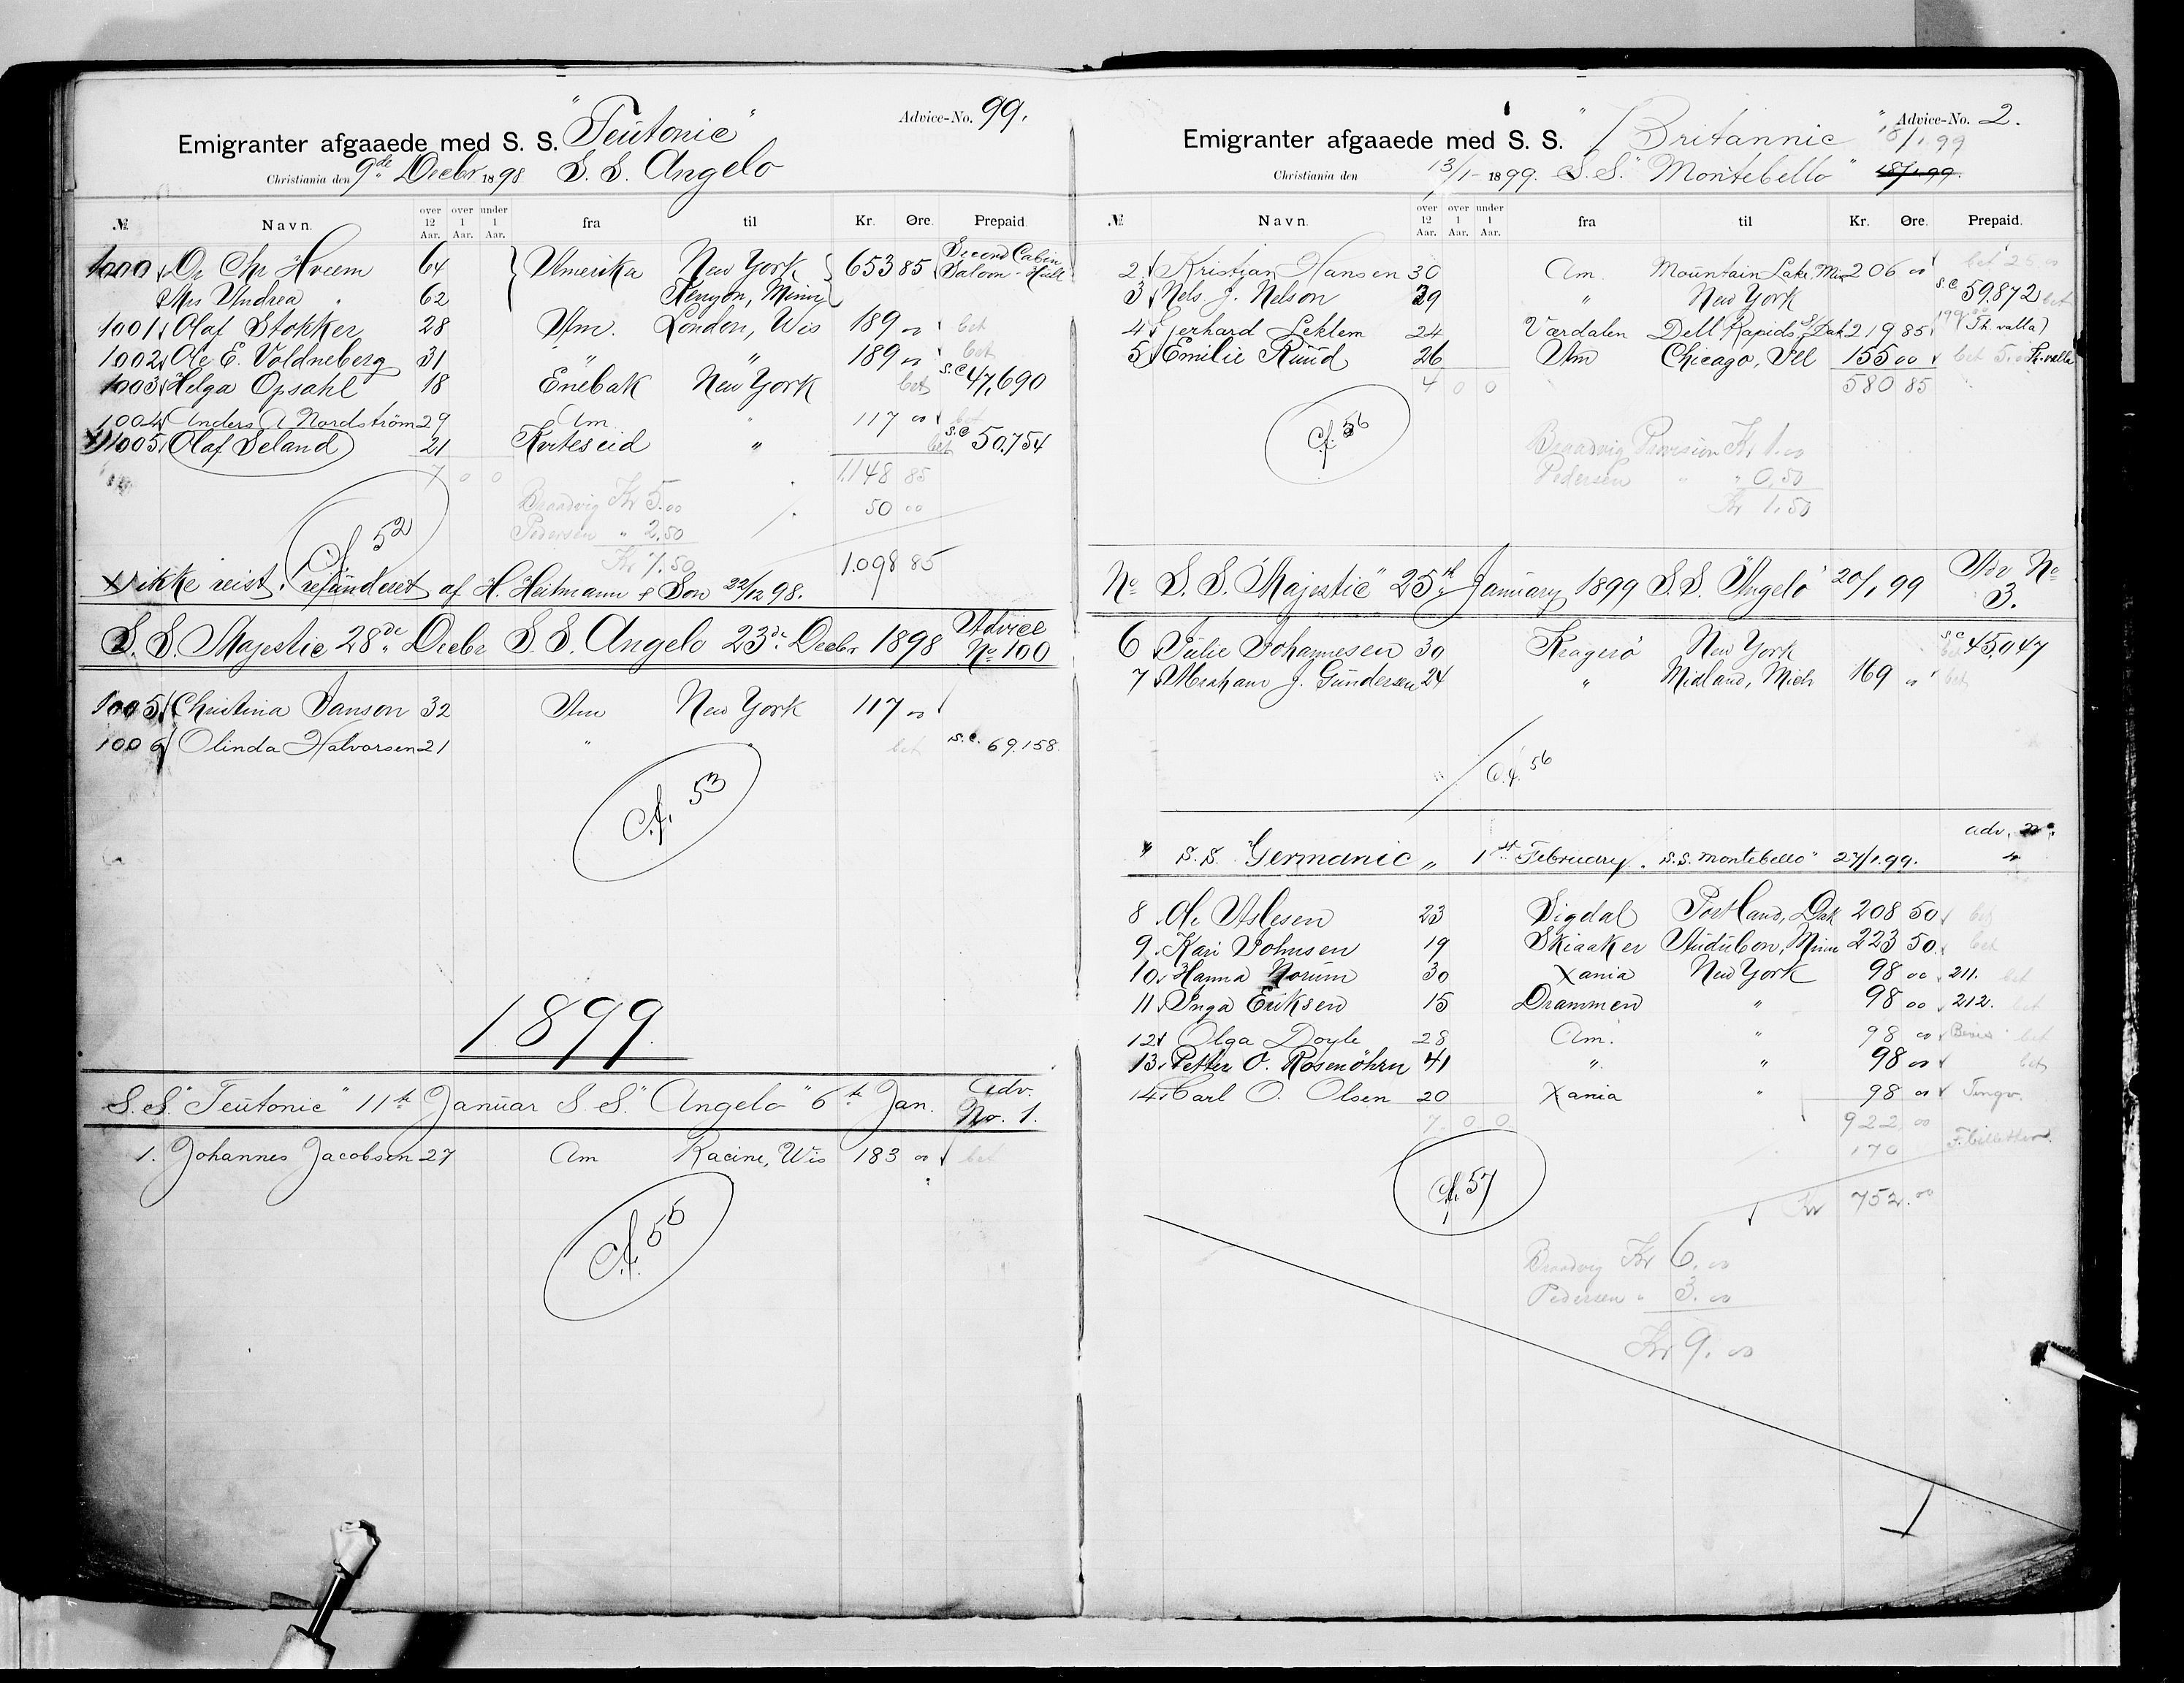 "Teutonic" Advice-No. 99.
Emigranter afgaaede med S. S.
Christiania den 9de Decbr 1898 S. S. Angelo
№ Navn. over 12 Aar. over 1 Aar. under 1 Aar. fra til Kr. Øre. Prepaid.
1000 Chr Hveem 64 Amerika New York 653 85 Second Cabin
Mrs Andrea " 62 Kenyon, Minn Saloon - Hull
1001 Olaf Stokker 28 Am. London, Wis 189 00 bet
1002 Ole E. Voldneberg 31 " " 189 00 bet
1003 Helga Opsahl 18 Enebak New York bet S.C 47,690
1004 Anders Nordström 29 Am " 117 00 bet
X 1005 Olaf Seland 21 Kviteseid " bet S.C 50.754
7 0 0 1,148 85
Braadvig Kr 5.00 50 00
Pedersen " 2.50
Kr 7.50 1.098 85
Cf. 52
X ikke reist. refunderet af H. Heitmann & Son 22/12 98.
S. S. Majestic 28de Decbr S. S. Angelo 23de Decbr 1898 Advice No 100
1005 Christina Janson 32 Am New York 117 00
1006 Olinda Halvorsen 21 " bet S.C. 69.158
Cf. 53
1899
S.S. "Teutonic" 11te Januar S. S. "Angelo" 6te Jan. Adv. No. 1.
1. Johannes Jacobsen 27 Am Racine, Wis 183 00 bet
Cf. 55
"Britannic" 18/1.99 Advice-No. 2.
Emigranter afgaaede med S. S.
Christiania den 13/1- 1899. S.S. "Montebello" 18/1.99.
№ Navn. over 12 Aar. over 1 Aar. under 1 Aar. fra til Kr. Øre. Prepaid.
2 Kristian Hansen 30 Am. Mountain Lake, Min 206 00 bet 25 00
3 Nels J. Nelson 39 " New York S.C 59,872 bet
4 Gerhard Leklem 24 Værdalen Dell Rapids S/Dak 219 85 Th. valla)
5 Emilie Ruud 26 Am Chicago, Ill 155 00 bet 5.00 Th. valla
4 0 0 580 85
Cf. 56
Braadvig Provision Kr 1.00
Pedersen " " 0,50
Kr 1,50
No S. S. "Majestic" 25th January 1899 S.S. "Angelo" 20/1 99 Adv No 3.
6 Julie Johannesen 30 Kragerö New York S.C bet 45,047
7 Abraham J. Gundersen 24 " Midland, Mich 169 00 bet
Cf. 56
" S.S. Germanic " 1st February. S.S. Montebello" 27/1.99. adv. no. 4
8 Ole Aslesen 23 Sigdal Portland, Dak 208 50 bet
9 Kari Johnsen 19 Skiaaker Audubon, Minn 223 50 bet
10 Hanna Norum 30 Xania New York 98 00 211. bet
11 Inga Eriksen 15 Drammen " 98 00 212. bet
12 Olga Doyle 28 Am. " 98 00 bet
13 Petter O. Rosenöhrn 41 " " 98 00 bet
14 Carl O. Olsen 20 Xania " 98 00
7. 0 0 922 00
170
Cf. 57
Kr 752.00
Braadvig Kr 6.00
Pedersen " 3.00
Kr 9.00